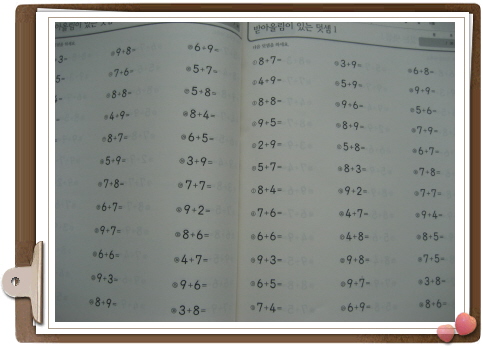 받아올림이 있는 덧셈 1
3=
9+8=
6+9=
5=
7+6=
5+7=
8+8=
5+8=
4+9=
8+4=
8+7=
6+5=
5+9=
3+9=
7+8=
7+7=
6+7=
9+2=
9+7=
8+6=
6+6=
4+7=
9+3=
9+6=
8+9=
3+8=
8+7=
3+9=
6+8=
4+9=
5+9=
9+9=
8+8=
9+6=
5+6=
9+5=
8+9=
7+9=
2+9=
5+8=
6+7=
5+7=
8+3=
7+8=
8+4=
9+2=
7+7=
7+6=
4+7=
9+4=
6+6=
4+8=
8+5=
9+3=
9+8=
7+5=
6+5=
9+7=
3+8=
7+4=
6+9=
8+6=